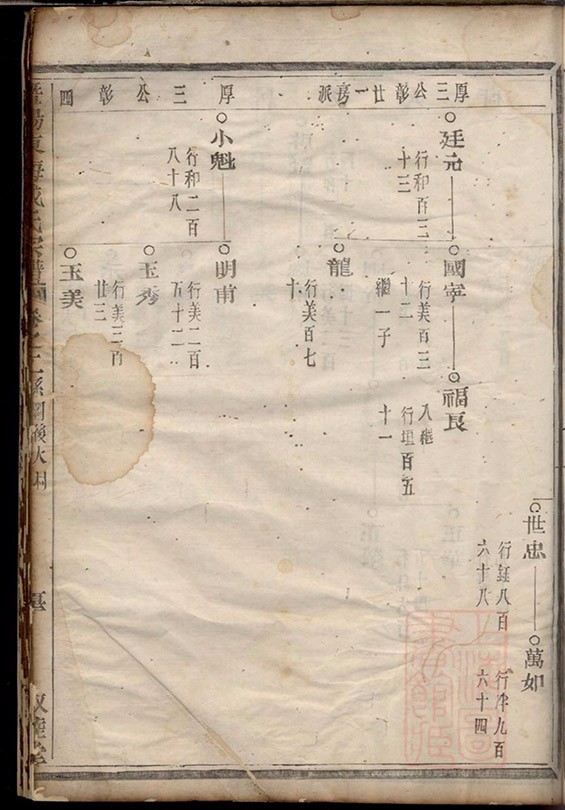 世忠
行鈺八百
六十八
萬如
行洚九百
六十四
厚三公彰廿一房派
廷元
行和百三
十三
國寧
行美百三
十二
繼一子
福良
入繼
行垣百五
十一
龍
行美百七
十
厚三公彰四
小魁
行和二百
八十八
明甫
行美二百
五十二
玉秀
行美三百
廿三
玉美
氏宗譜
系圖